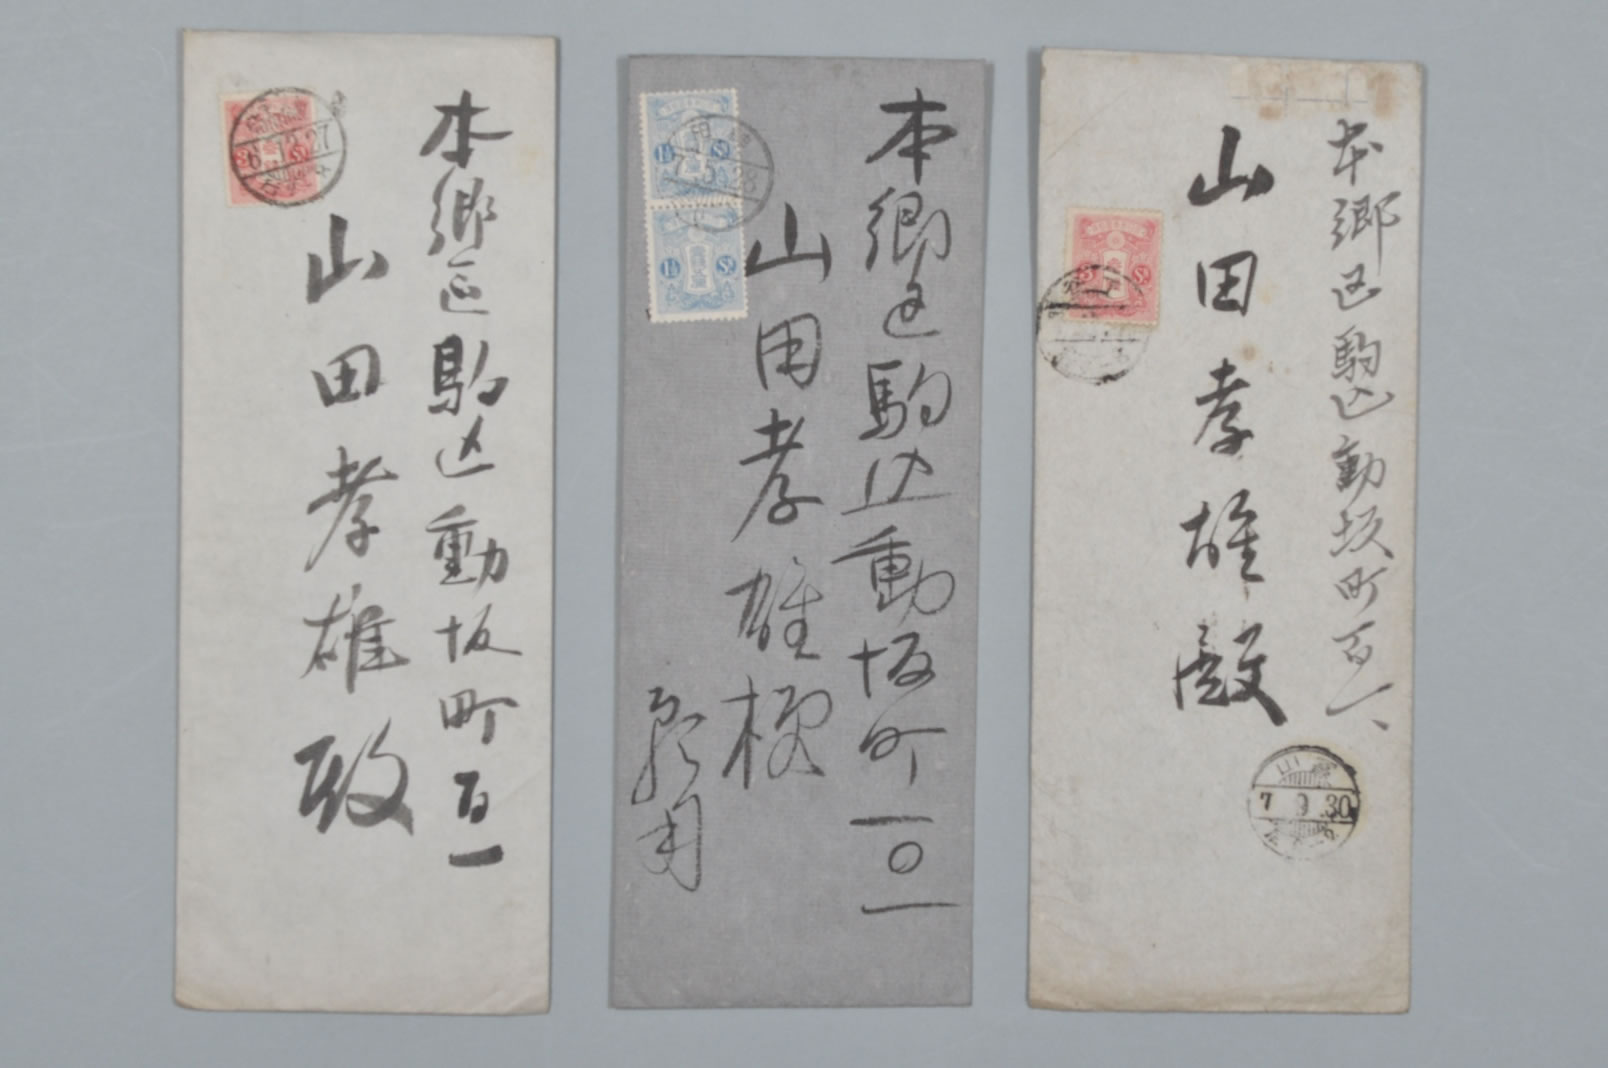 本郷区駒込動坂町百一
山田孝雄殿
6.12.27
本郷区駒込動坂町一〇一
山田孝雄様
親用
1½ Sn
1½ Sn
本郷区駒込動坂町百一
山田孝雄殿
3 Sn
7.9.30